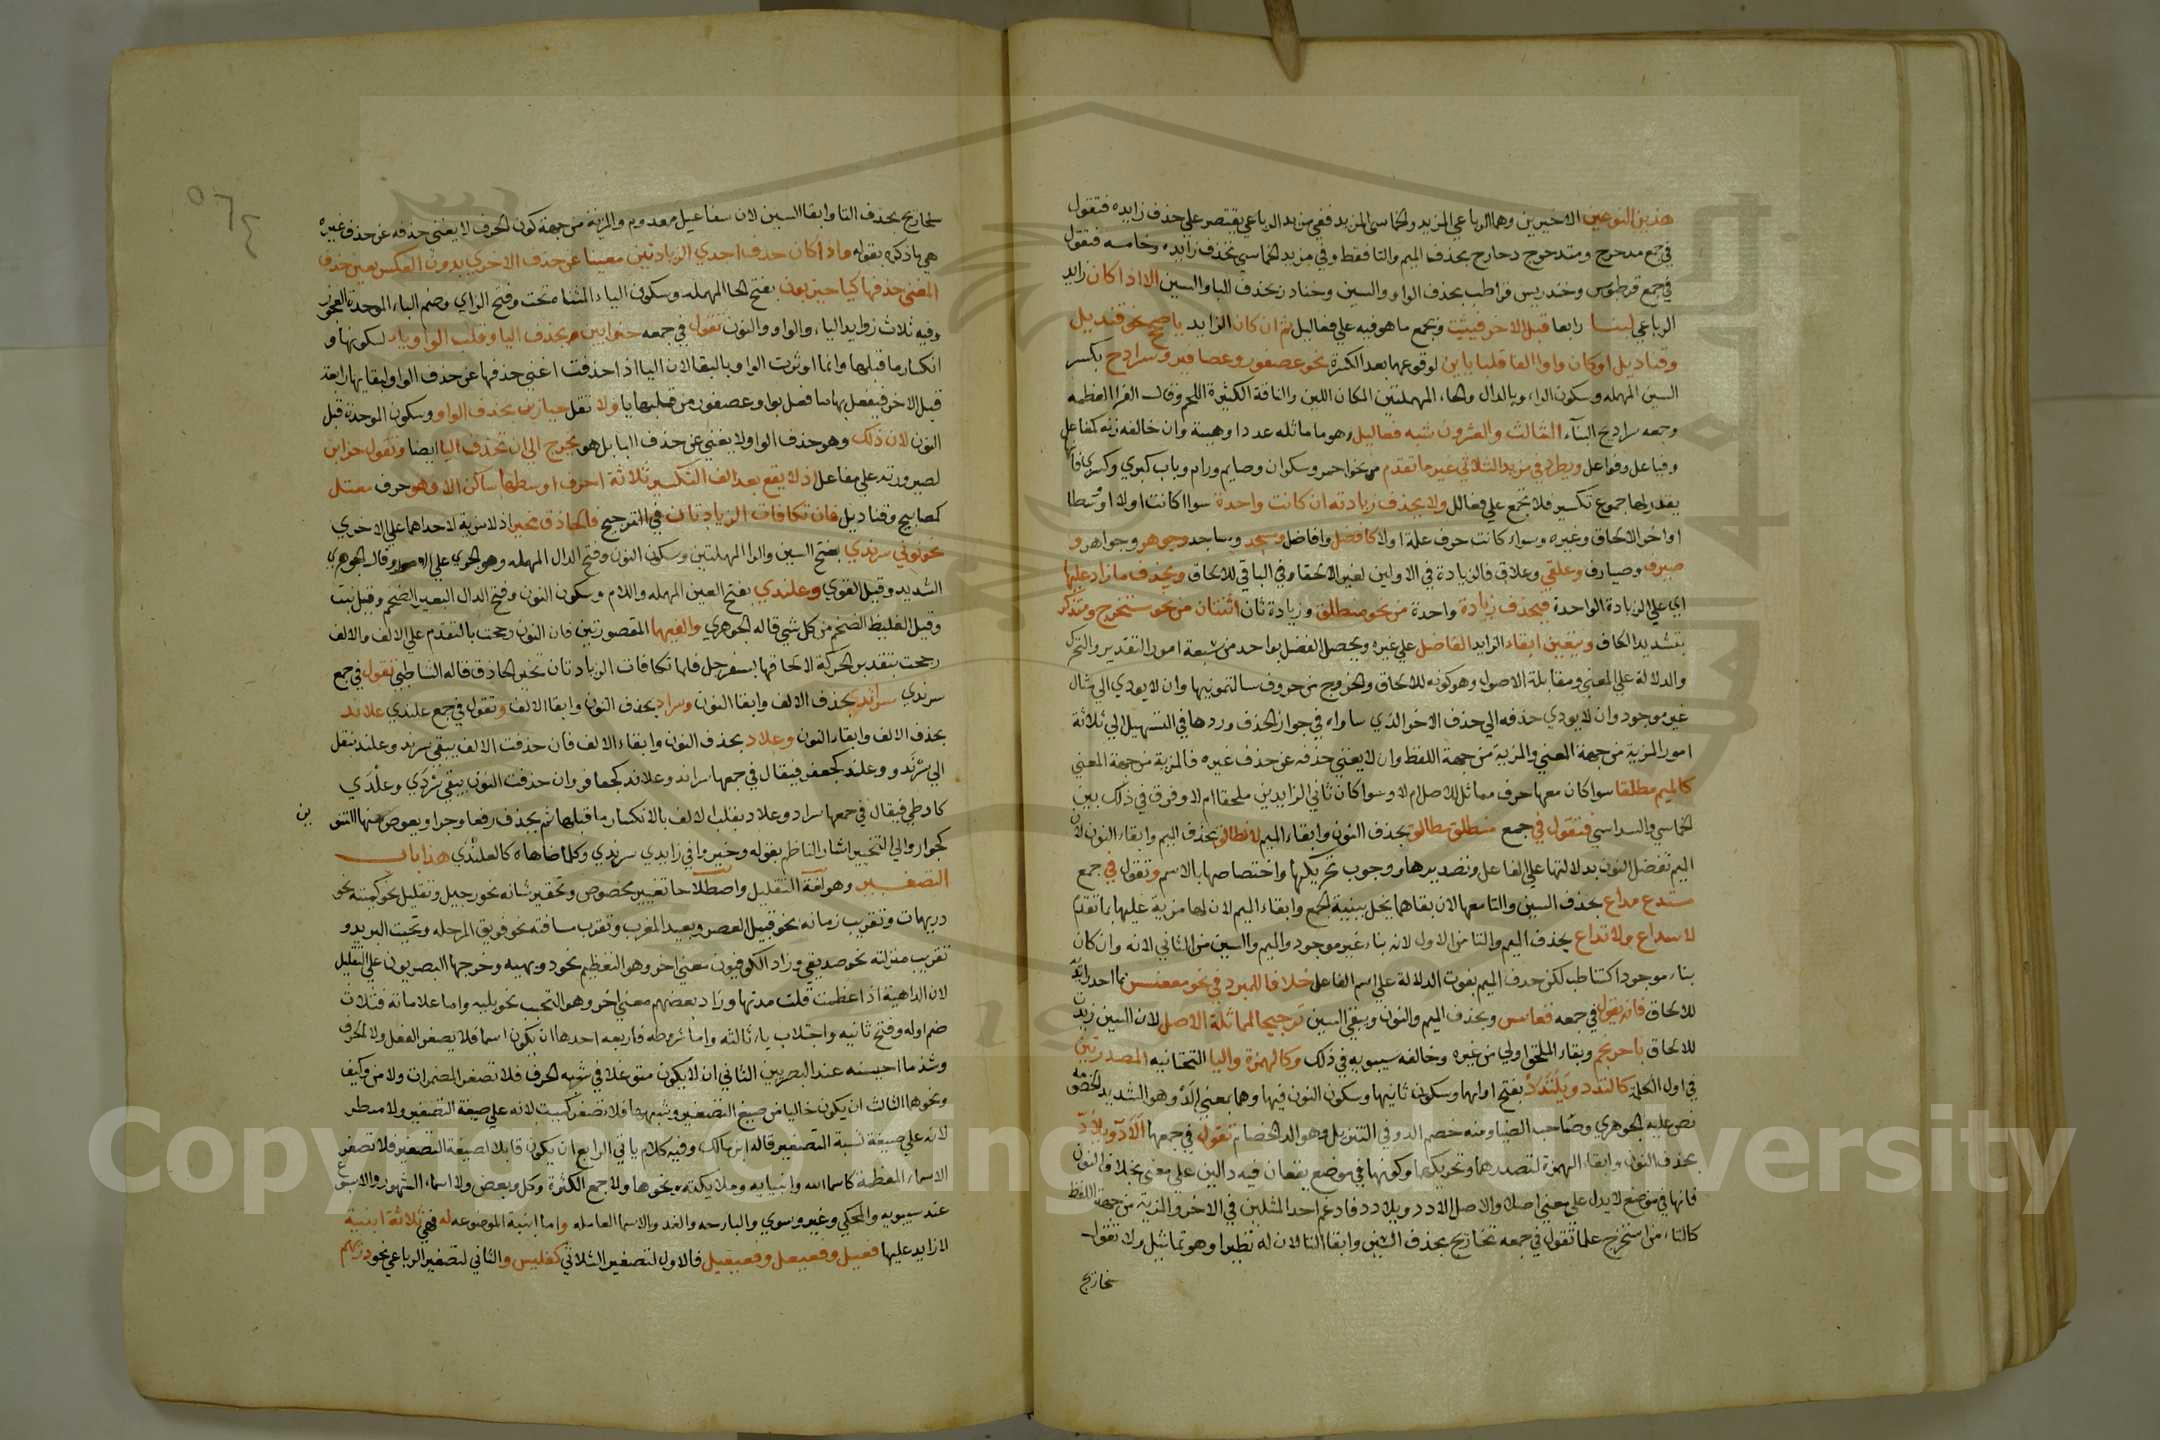 هذين النوعين الاخيرين وهما الرباعي المزيد والخماسي المزيد ففي مزيد الرباعي يقتصر علي حذف زايده فتقول
في جمع مدحرج ومتدحرج دحارج بحذف الميم والتا فقط وفي مزيد الخماسي تحذف زايده وخامسه فتقول
في جمع قرطبوس وخندريس قراطب بحذف الواو والسين وخنادر بحذف اليا والسين الا اذا كان زايد
الرباعي لينا رابعا قبل الاخر فيثبت ويجمع ما هو فيه علي فعاليل ثم ان كان الزايد يا صحح نحو قنديل
وقناديل او كان واوا او الفا قلبا ياين لوقوعهما بعد الكسرة نحو عصفور وعصافير وسرادح بكسر
السين المهمله وسكون الراء وبالدال والحاء المهملتين المكان اللين والناقة الكثيرة اللحم وقال الفرا العظيمه
وجمعه سراديح البناء الثالث والعشرون شبه فعاليل وهو ما ماثله عددا وهيئة وان خالفه زنه كمفاعل
وفياعل وفواعل ويطرد في مزيد الثلاثي غير ما تقدم من نحو احمر وسكران وصايم ورام وباب كبري وكسري فانها
تقدم لها جموع تكسير فلا تجمع علي فعالل ولا يحذف زيادته ان كانت واحدة سوا اكانت اولا او وسطا
او اخرا لالحاق وغيره وسواء كانت حرف علة او لا كافضل وافاضل ومسجد ومساجد وجوهر وجواهر و
صيرف وصيارف وعلقي وعلاق فالزيادة في الاولين لغير الالحاق وفي الباقي للالحاق ويحذف ما زاد عليها
اي علي الزيادة الواحدة فيحذف زيادة واحدة من نحو منطلق وزيادتان اثنتان من نحو مستخرج ومتذكر
بتشديد الكاف ويتعين ابقاء الزايد الفاضل علي غيره ويحصل الفضل بواحد من سبعة امور التقدير والتحرك
والدلالة علي المعني ومقابلة الاصول وهو كونه للالحاق والخروج من حروف سالتمونيها وان لا يودي الي مثال
غير موجود وان لا يودي حذفه الي حذف الاخر الذي ساواه في جواز الحذف وردها في التسهيل الي ثلاثة
امور المزية من جهة المعني والمزية من جهة اللفظ وان لا يغني حذفه عن حذف غيره فالمزية من جهة المعني
كالميم مطلقا سوا كان معها حرف مماثل للاصل ام لا وسوا كان ثاني الزايدين ملحقا ام لا وفرق في ذلك بين
الخماسي والسداسي فتقول في جمع منطلق مطالق بحذف النون وابقاء الميم لا نطالق بحذف الميم وابقاء النون لان
الميم تفضل النون بدلالتها علي الفاعل وتصديرها ووجوب تحريكها واختصاصها بالاسم وتقول في جمع
مستدع مداع بحذف السين والتا معها لان بقاهما يخل ببنية الجمع وابقاء الميم لان لها مزية عليهما بما تقدم
لا سداع ولا تداع بحذف الميم والتا من الاول لانه بناء غير موجود والميم والسين من الثاني لانه وان كان
بناء موجودا كتناضب لكن حذف الميم يفوت الدلالة علي اسم الفاعل خلافا للمبرد في نحو مقعنسس مما احد زايديه
للالحاق فانه يقول في جمعه قعاسس ويحذف الميم والنون ويبقي السين ترجيحا لمماثلة الاصل لان السين زيدت
للالحاق باحرنجم وبقاء الملحق اولي من غيره وخالفه سيبويه في ذلك وكالهمزة واليا التحتانيه المصدرتين
في اول الكلمة كالندد ويلندد بفتح اولهما وسكون ثانيهما وسكون النون فيهما وهما بمعني الد وهو الشديد الخصومه
نص عليه الجوهري وصاحب الضيا ومنه خصم الد وفي التنزيل وهو الد الخصام تقول في جمعهما الاد ويلاد
بحذف النون وابقاء الهمزة لتصدرهما وتحريكهما وكونهما في موضع يقعان فيه دالين علي معني بخلاف النون
فانها في موضع لا يدل علي معني اصلا والاصل الادد ويلادد فادغم احد المثلين في الاخر والمزية من جهة اللفظ
كالتاء من استخرج علما تقول في جمعه تخاريج بحذف السين وابقا التا لان له نظيرا وهو تماثيل ولا تقول
سخاريج
سخاريج بحذف التا وابقا السين لان سفاعيل معدوم والمزية من جهة كون الحرف لا يغني حذفه عن حذف غيره
هي ما ذكره بقوله واذا كان حذف احدي الزيادتين مغنيا عن حذف الاخري بدون العكس تعين حذف
المغني حذفها كيا حيزبون بفتح الحا المهمله وسكون الياء المثناه تحت وفتح الزاي وضم الباء الموحدة العجوز
وفيه ثلاث زوايد الياء والواو والنون تقول في جمعه حزابين بحذف اليا وقلب الواو ياء لسكونها و
انكسار ما قبلها وانما اوثرت الواو بالبقا لان اليا اذا حذفت اغني حذفها عن حذف الواو لبقايها رابعة
قبل الاخر فيفعل بها ما فعل بواو عصفور من قلبها يا ولا تقل حيازبن بحذف الواو وسكون الموحدة قبل
النون لان ذلك وهو حذف الواو لا يغني عن حذف اليا بل هو يحوج الي ان تحذف اليا ايضا وتقول حزابن
لصيرورته علي مفاعل اذ لا يقع بعد الف التكسير ثلاثة احرف اوسطها ساكن الا وهو حرف معتل
كمصابيح وقناديل فان تكافات الزيادتان في الترجيح فالحاذق مخير اذ لا مزية لاحداهما علي الاخري
نحو نوني سرندي بفتح السين والرا المهملتين وسكون النون وفتح الدال المهمله وهو الجري علي الامور وقال الجوهري
الشديد وقيل القوي وعلندي بفتح العين المهمله واللام وسكون النون وفتح الدال البعير الضخم وقيل نبت
وقيل الغليظ الضخم من كل شي قاله الجوهري والفيهما المقصورتين فان النون رجحت بالتقدم علي الالف والالف
رجحت بتقدير الحركة لالحاقها بسفرجل فلما تكافات الزيادتان تخير الحاذق قاله الشاطبي تقول في جمع
سرندي سراند بحذف الالف وابقا النون وسراد بحذف النون وابقا الالف وتقول في جمع علندي علاند
بحذف الالف وابقاء النون وعلاد بحذف النون وابقاء الالف فان حذفت الالف يبقي سرند وعلند بنقل
الي سرند وعلند كجعفر فيقال في جمعهما سراند وعلاند كجعافر وان حذفت النون يبقي سردي وعلدي
كارطي فيقال في جمعهما سراد وعلاد بقلب الالف يا لانكسار ما قبلها ثم بحذف رفعا وجرا ويعوض منها التنو
ين
كجوار والي التخيير اشار الناظم بقوله وخيروا في زايدي سرندي وكل ما ضاهاه كالعلندي هذا باب
التصغير وهو لغة التقليل واصطلاحا تغيير مخصوص وتحقير شانه نحو رجيل وتقليل نحو كميته نحو
دريهمات وتقريب زمانه نحو قبيل العصر وبعيد المغرب وتقرب مسافته نحو فويق المرحله وتحيت البريد و
تقريب منزلته نحو صديقي وزاد الكوفيون معني اخر وهو التعظيم نحو دويهيه وخرجها البصريون علي التقليل
لان الداهية اذا عظمت قلت مدتها وزاد بعضهم معني اخر وهو التحبب نحو بنيه واما علاماته فثلاث
ضم اوله وفتح ثانيه واجتلاب ياء ثالثه واما شروطه فاربعه احدها ان يكون اسما فلا يصغر الفعل ولا الحرف
وشذ ما احيسنه عند البصريين الثاني ان لا يكون متوغلا في شبه الحرف فلا تصغر المضمرات ولا من وكيف
ونحوهما الثالث ان يكون خاليا من صيغ التصغير وشبهها فلا تصغر كميت لانه علي صيغة التصغير ولا مبيطر
لانه علي صيغة تشبه التصغير قاله ابن مالك وفيه كلام ياتي الرابع ان يكون قابلا لصيغة التصغير فلا تصغر
الاسماء المعظمة كاسماء الله وانبيايه وملايكته ونحوها ولا جمع الكثرة وكل وبعض ولا اسماء الشهور والاسبوع
عند سيبويه والمحكي وغير وسوي والبارحه والغد والاسما العامله واما ابنية الموضوعه له فهي ثلاثة ابنية
لا زايد عليها فعيل وفعيعل وفعيعيل فالاول لتصغير الثلاثي كفليس والثاني لتصغير الرباعي نحو دريهم
Copyright © King Saud University